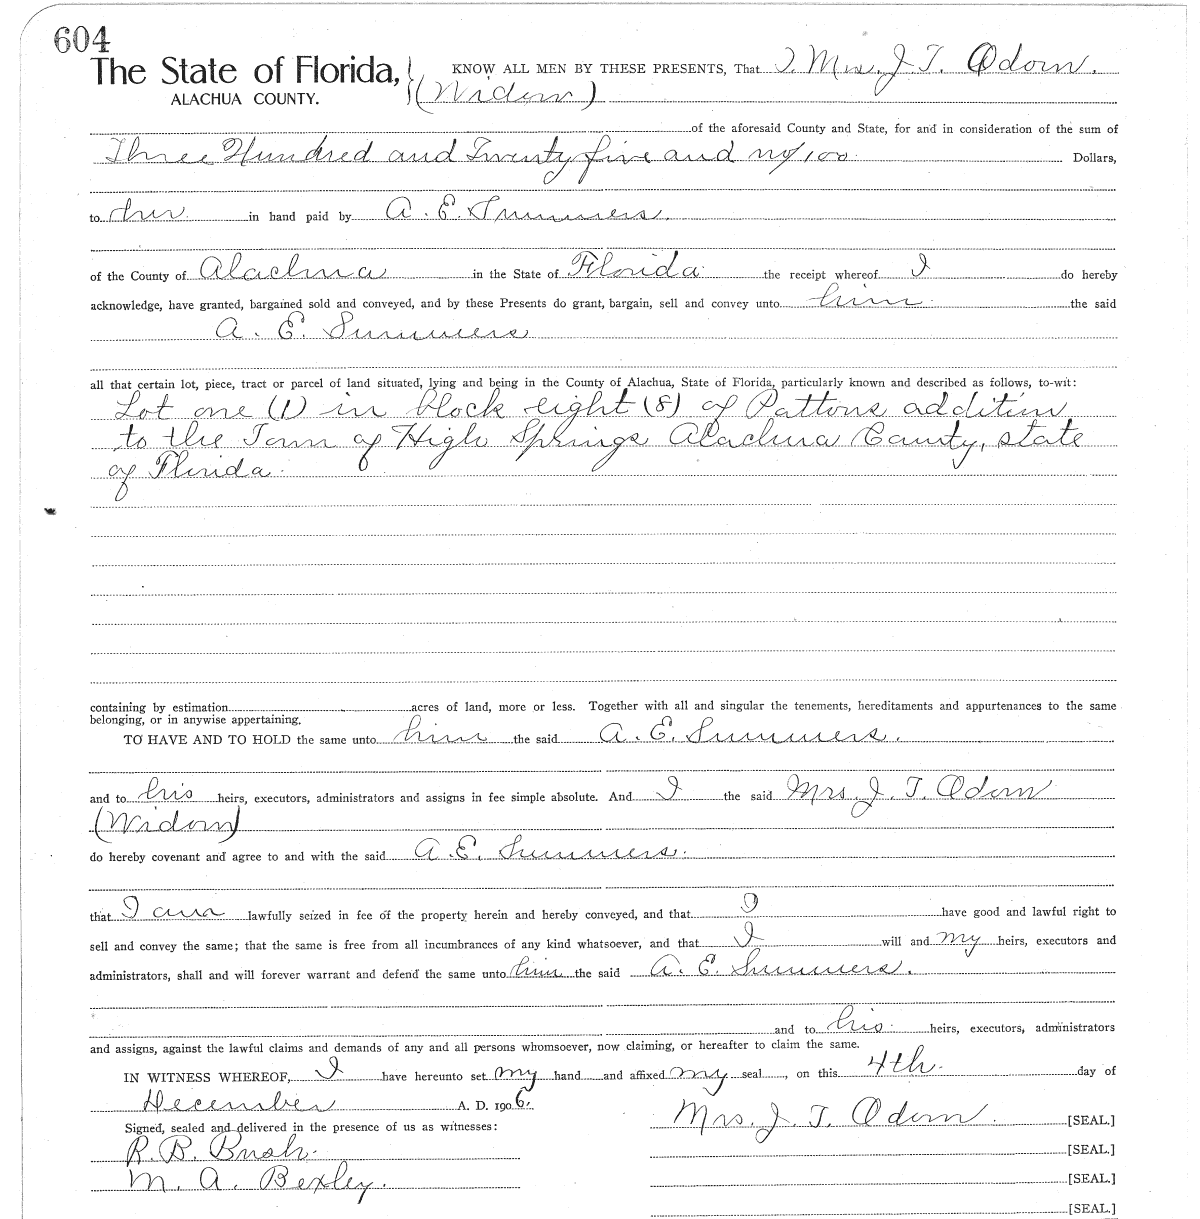 604
The State of Florida,
ALACHUA COUNTY.
KNOW ALL MEN BY THESE PRESENTS, That I, Mrs. J. T. Odom.
(Widow)
of the aforesaid County and State, for and in consideration of the sum of
Three Hundred and Twenty five and no/100 Dollars,
to her in hand paid by A. E. Summers.
of the County of Alachua in the State of Florida the receipt whereof I do hereby
acknowledge, have granted, bargained sold and conveyed, and by these Presents do grant, bargain, sell and convey unto him the said
A. E. Summers
all that certain lot, piece, tract or parcel of land situated, lying and being in the County of Alachua, State of Florida, particularly known and described as follows, to-wit:
Lot one (1) in block eight (8) of Pattons addition
to the Town of High Springs Alachua County, state
of Florida.
containing by estimation acres of land, more or less. Together with all and singular the tenements, hereditaments and appurtenances to the same
belonging, or in anywise appertaining.
TO HAVE AND TO HOLD the same unto him the said A. E. Summers.
and to his heirs, executors, administrators and assigns in fee simple absolute. And I the said Mrs. J. T. Odom
(Widow)
do hereby covenant and agree to and with the said A. E. Summers.
that I am lawfully seized in fee of the property herein and hereby conveyed, and that I have good and lawful right to
sell and convey the same; that the same is free from all incumbrances of any kind whatsoever, and that I will and my heirs, executors and
administrators, shall and will forever warrant and defend the same unto him the said A. E. Summers.
and to his heirs, executors, administrators
and assigns, against the lawful claims and demands of any and all persons whomsoever, now claiming, or hereafter to claim the same.
IN WITNESS WHEREOF, I have hereunto set my hand and affixed my seal, on this 4th. day of
December A. D. 1906.
Mrs. J. T. Odom. [SEAL.]
Signed, sealed and delivered in the presence of us as witnesses:
R. B. Bush. [SEAL.]
M. A. Bexley. [SEAL.]
[SEAL.]